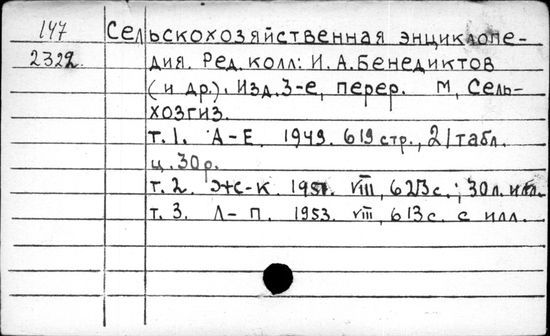 147 Сельскохозяйственная энциклопе-
2322 дия. Ред. колл: И. А. Бенедиктов
(и др.). Изд. 3-е, перер. М, Сель-
хозгиз.
т. 1. А-Е. 1949. 619 стр., 21 табл.
ц. 30 р.
т. 2. Ж-К. 1951. VIII, 623 с.; 30 л. илл.
т. 3. Л-П. 1953. VIII, 613 с. с илл.